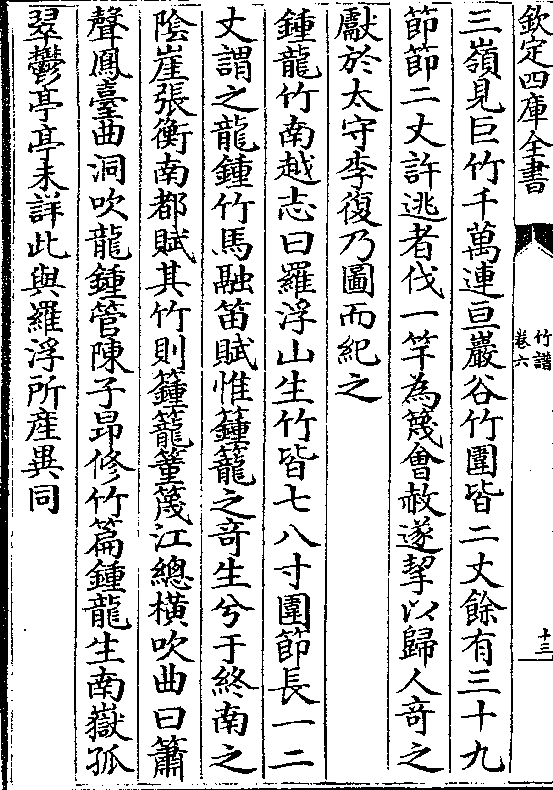 欽定四庫全書
竹譜
卷六
十三
三嶺見巨竹千萬連亘巖谷竹圍皆二丈餘有三十九
節節二丈許逃者伐一竿為篾會赦遂挈以歸人竒之
獻於太守李復乃圖而紀之
鍾龍竹南越志曰羅浮山生竹皆七八寸圍節長一二
丈謂之龍鍾竹馬融笛賦惟籦籠之竒生兮于終南之
陰崖張衡南都賦其竹則籦籠䈏篾江總橫吹曲曰簫
聲鳳臺曲洞吹龍鍾管陳子昻修竹篇鍾龍生南嶽孤
翠鬱亭亭未詳此與羅浮所產異同